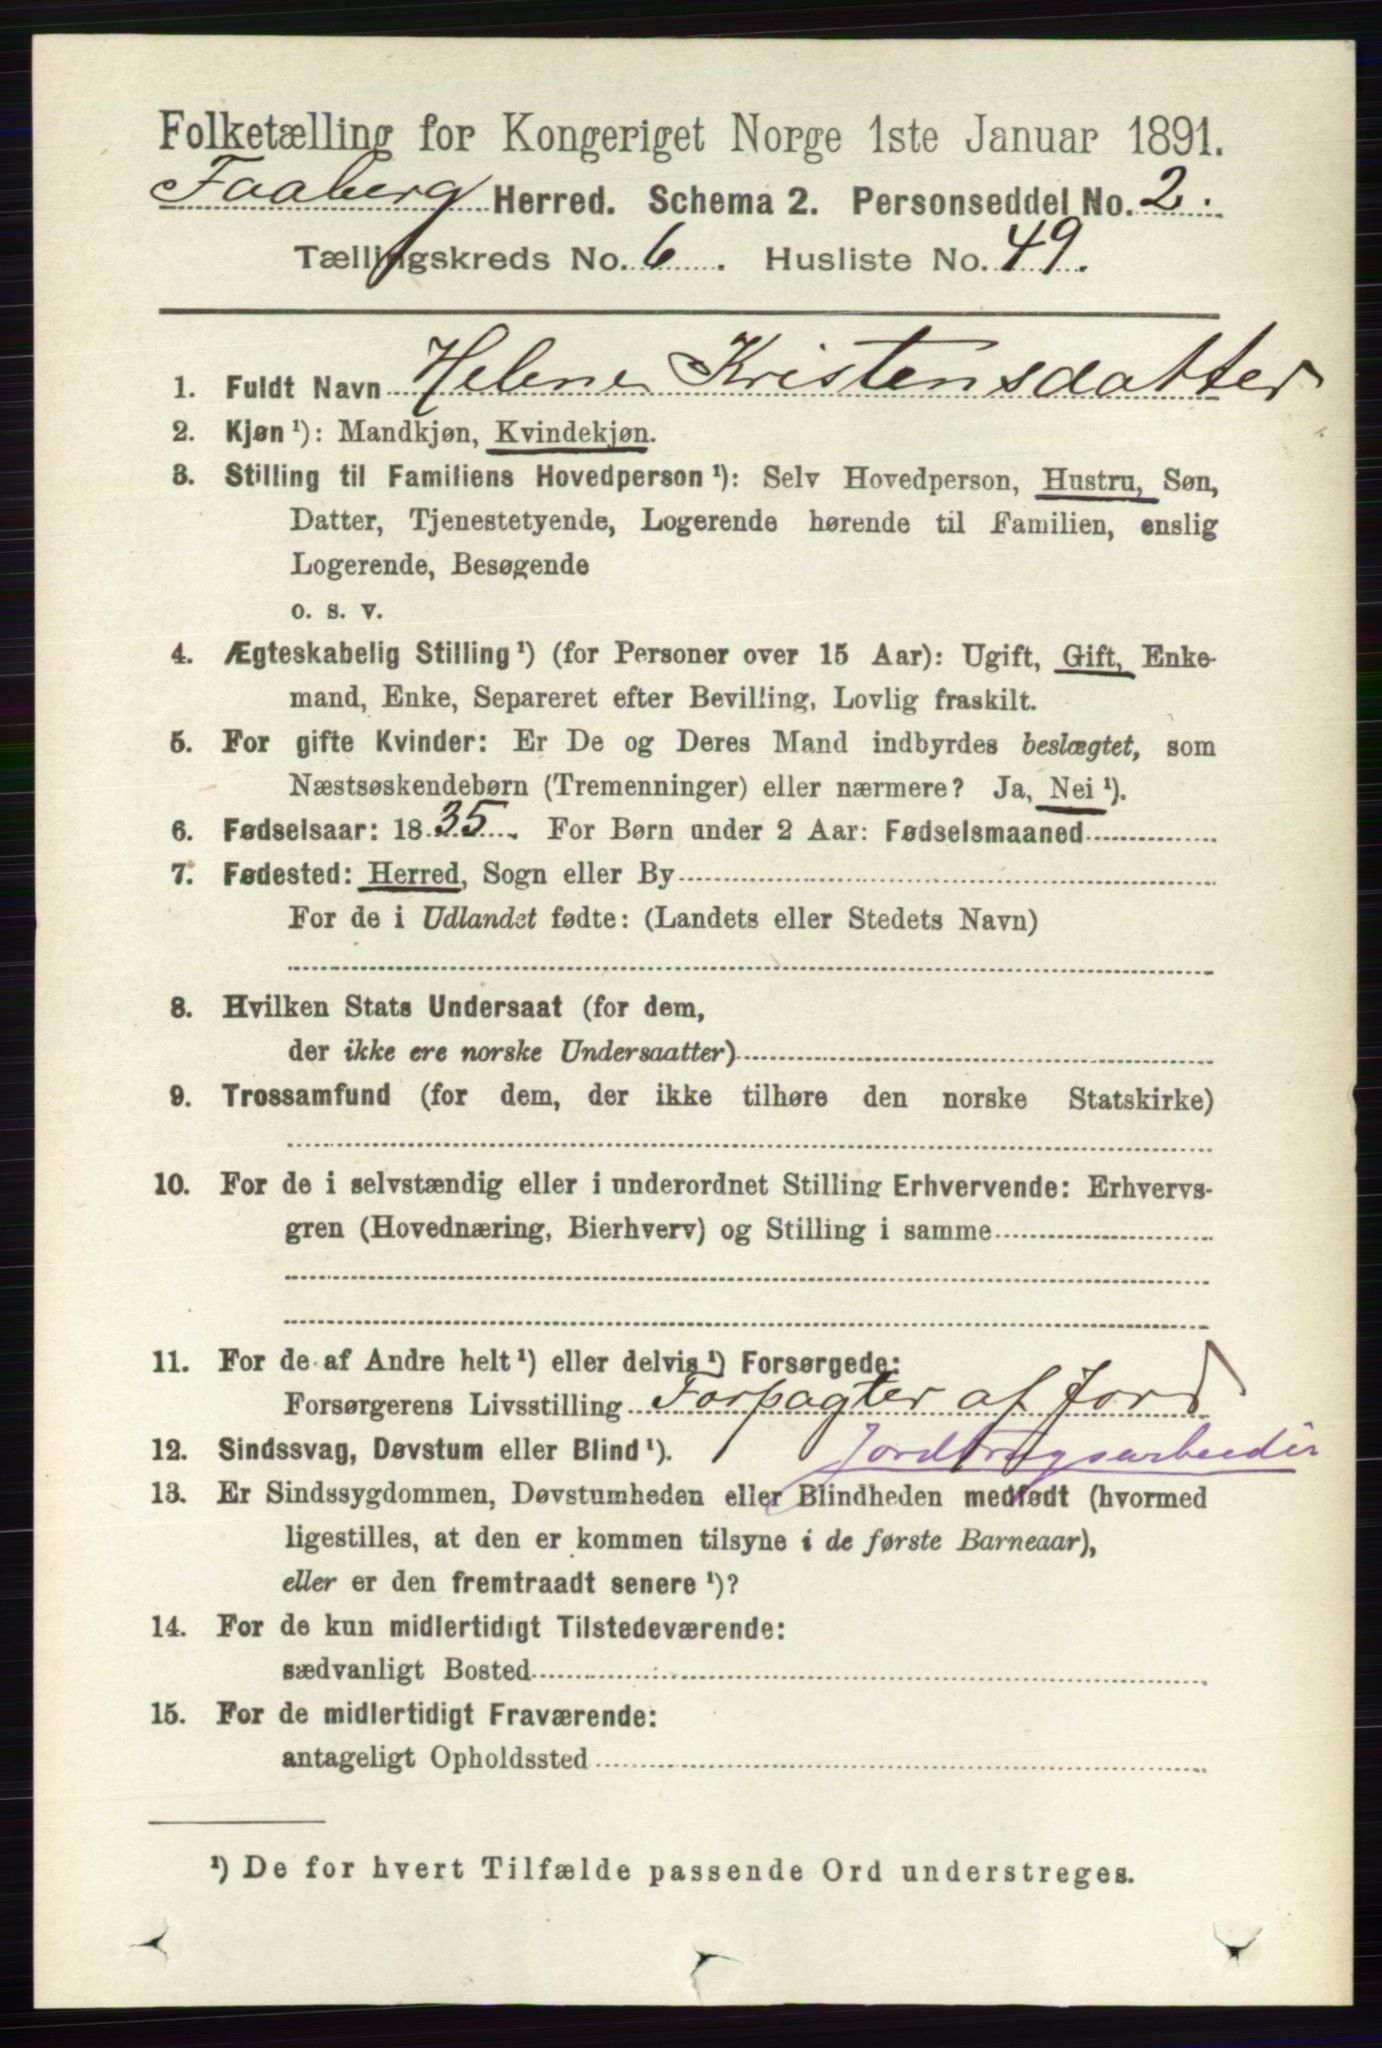 Folketælling for Kongeriget Norge 1ste Januar 1891.
Faaberg Herred. Schema 2. Personseddel No. 2.
Tællingskreds No. 6. Husliste No. 49.
1. Fuldt Navn Helene Kristensdatter
2. Kjøn ¹): Mandkjøn, Kvindekjøn.
3. Stilling til Familiens Hovedperson ¹): Selv Hovedperson, Hustru, Søn,
Datter, Tjenestetyende, Logerende hørende til Familien, enslig
Logerende, Besøgende
o. s. v.
4. Ægteskabelig Stilling ¹) (for Personer over 15 Aar): Ugift, Gift, Enke-
mand, Enke, Separeret efter Bevilling, Lovlig fraskilt.
5. For gifte Kvinder: Er De og Deres Mand indbyrdes beslægtet, som
Næstsøskendebørn (Tremenninger) eller nærmere? Ja, Nei ¹).
6. Fødselsaar: 1835. For Børn under 2 Aar: Fødselsmaaned
7. Fødested: Herred, Sogn eller By
For de i Udlandet fødte: (Landets eller Stedets Navn)
8. Hvilken Stats Undersaat (for dem,
der ikke ere norske Undersaatter)
9. Trossamfund (for dem, der ikke tilhøre den norske Statskirke)
10. For de i selvstændig eller i underordnet Stilling Erhvervende: Erhvervs-
gren (Hovednæring, Bierhverv) og Stilling i samme
11. For de af Andre helt ¹) eller delvis ¹) Forsørgede:
Forsørgerens Livsstilling Forpagter af Jord
12. Sindssvag, Døvstum eller Blind ¹). Jordbrugsarbeider
13. Er Sindssygdommen, Døvstumheden eller Blindheden medfødt (hvormed
ligestilles, at den er kommen tilsyne i de første Barneaar),
eller er den fremtraadt senere ¹)?
14. For de kun midlertidigt Tilstedeværende:
sædvanligt Bosted
15. For de midlertidigt Fraværende:
antageligt Opholdssted
¹) De for hvert Tilfælde passende Ord understreges.